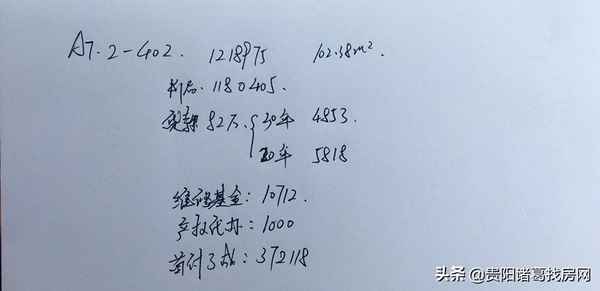 A7.2-402. 1218975 102.38m²
折后.1180405.
贷款82万{30年 4853.
20年 5818
维修基金:10712.
产权代办:1000
首付3成:372118
头条@贵阳诸葛找房网